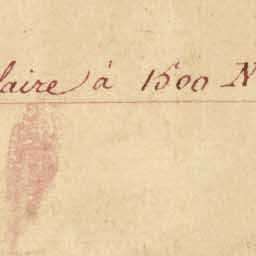 laire à 1500 N